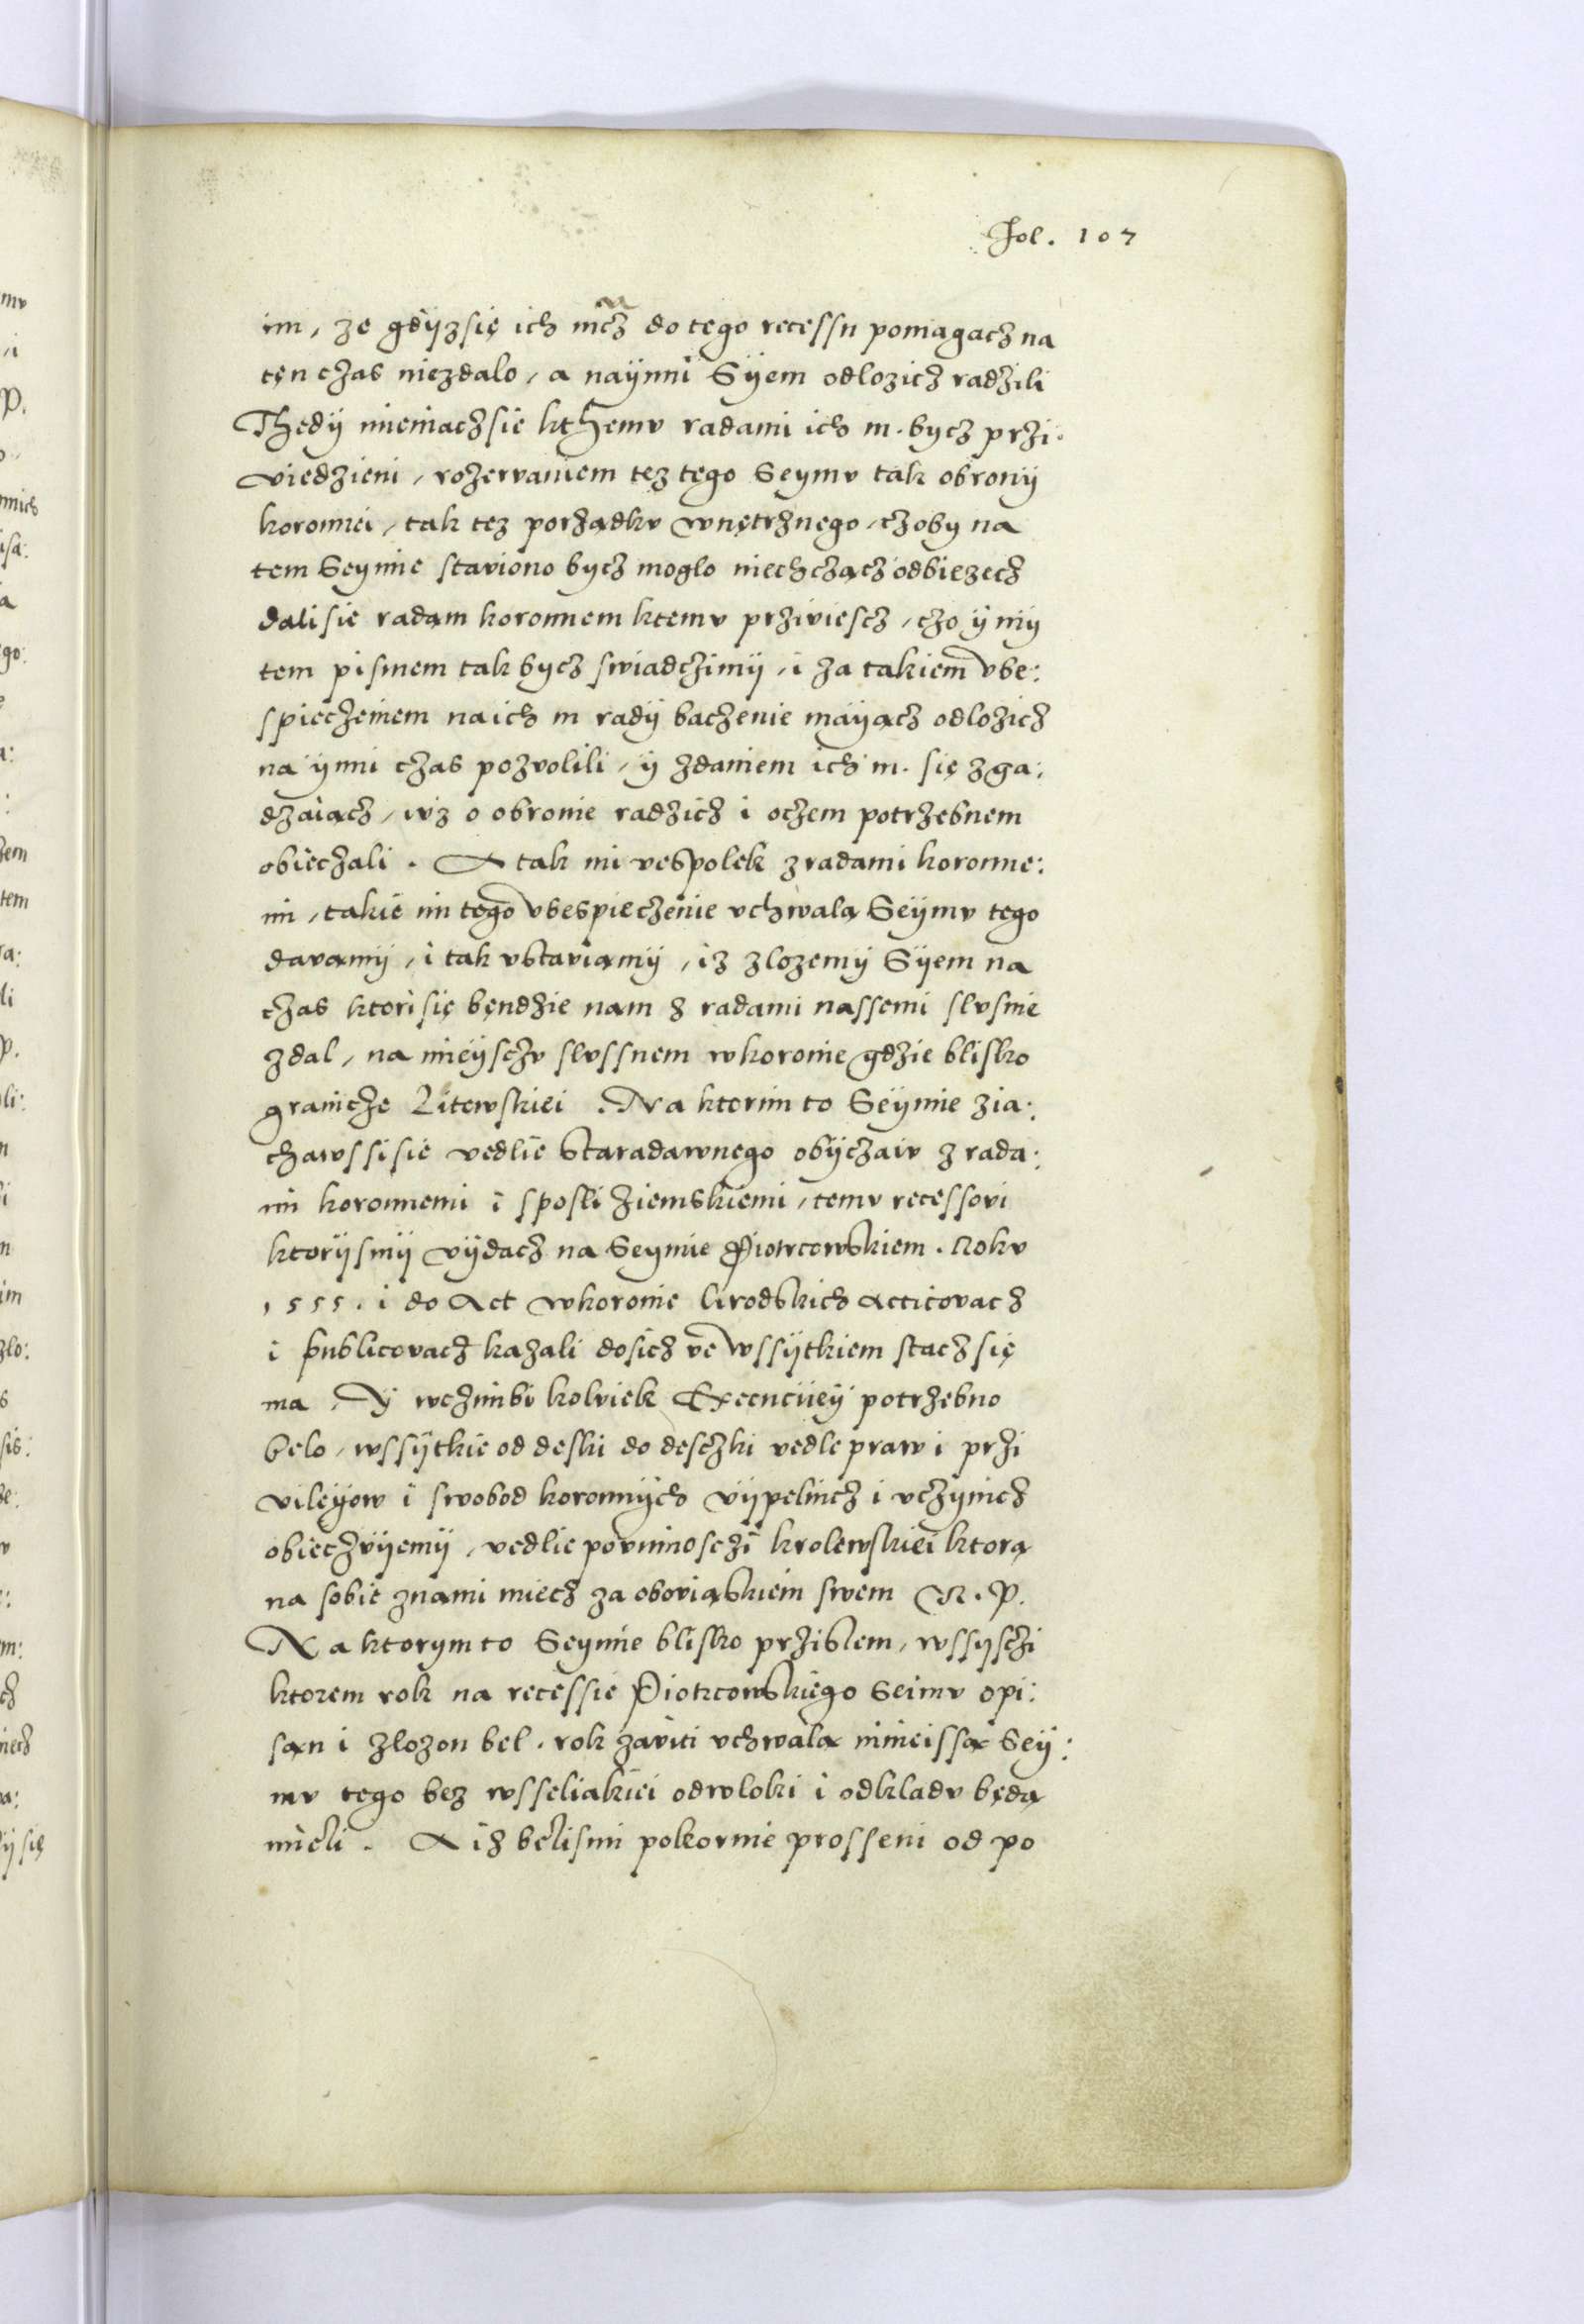 Fol. 107
im, ze gdÿz się ich mcz do tego recessu pomagacz na
tęn czas niezdalo, a naÿnni Sÿem odlozicz radzili
Thedÿ mieniaczsie kthemv radami ich m. bycz przi:
viedzieni, rozervaniem tez tego Seymv tak obronÿ
koronnei, tak tez porządkv wnętrznego, czoby na
tem Seymie staviono bycz moglo niechczącz odbiezecz
dali sie radam koronnem ktemv prziviescz, czo ÿ mÿ
tem pismem tak bycz swiadczimÿ, i za takiem vbe:
spieczeniem na ich m radÿ baczenie maÿącz odlozicz
na ÿnni czas pozvolili, ÿ zdaniem ich m. się zga:
dzaiącz, isz o obronie radzicz i oczem potrzebnem
obieczali. A tak mi vespolek z radami koronne:
mi, takie im tego vbespieczenie vchwalą Seÿmv tego
davamÿ, i tak vstaviamÿ, iz zlozemÿ Sÿem na
czas ktori się bęndzie nam z radami nassemi slvsnie
zdal, na mieÿsczv slvssnem w koronie gdzie blisko
granicze Litewskiei. Na ktorim to Seÿmie zia:
chawssi sie vedlie staradawnego obÿczaiv z rada:
mi koronnemi i sposli ziemskiemi, temv recessovi
ktorÿ smÿ vÿdacz na Seymie Piotrcowskiem. Rokv
1555. i do Act w koronie Grodskich acticovacz
i publicovacz kazali dosicz ve wssÿtkiem stacz się
ma, Ÿ w czimbi kolviek Execuciieÿ potrzebno
belo, wssÿtkie od deski do desczki vedle praw i przi
vileÿow i swobod koronnÿch vÿpelnicz i vczÿnicz
obieczvÿemÿ, vedlie povinnosczi krolewskiei ktorą
na sobie znami miecz za oboviąskiem swem R. P.
Na ktorym to Seymie blisko przislem, wssysczi
ktorem rok na recessie Piotrcowskiego Seimv opi:
san i zlozon bel. rok zaviti vchwalą ninieissą Seÿ:
mv tego bez wsseliakiei odwloki i odkladv będą
mieli. A iz belismi pokornie prosseni od po